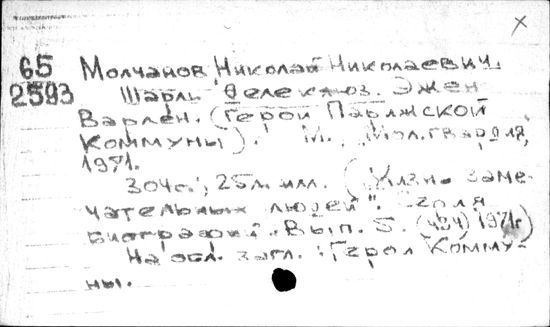 65
2593
Молчанов Николай Николаевич.
Шарль Делеклюз. Эжен
Варлен. (Герои Парижской
Коммуны). М., "Мол. гвардия",
1971.
304с.; 25л. илл. ("Жизнь заме-
чательных людей". Серия
биографий. Вып. 5. (494) 1971г)
На обл. загл.: Герои Комму-
ны.